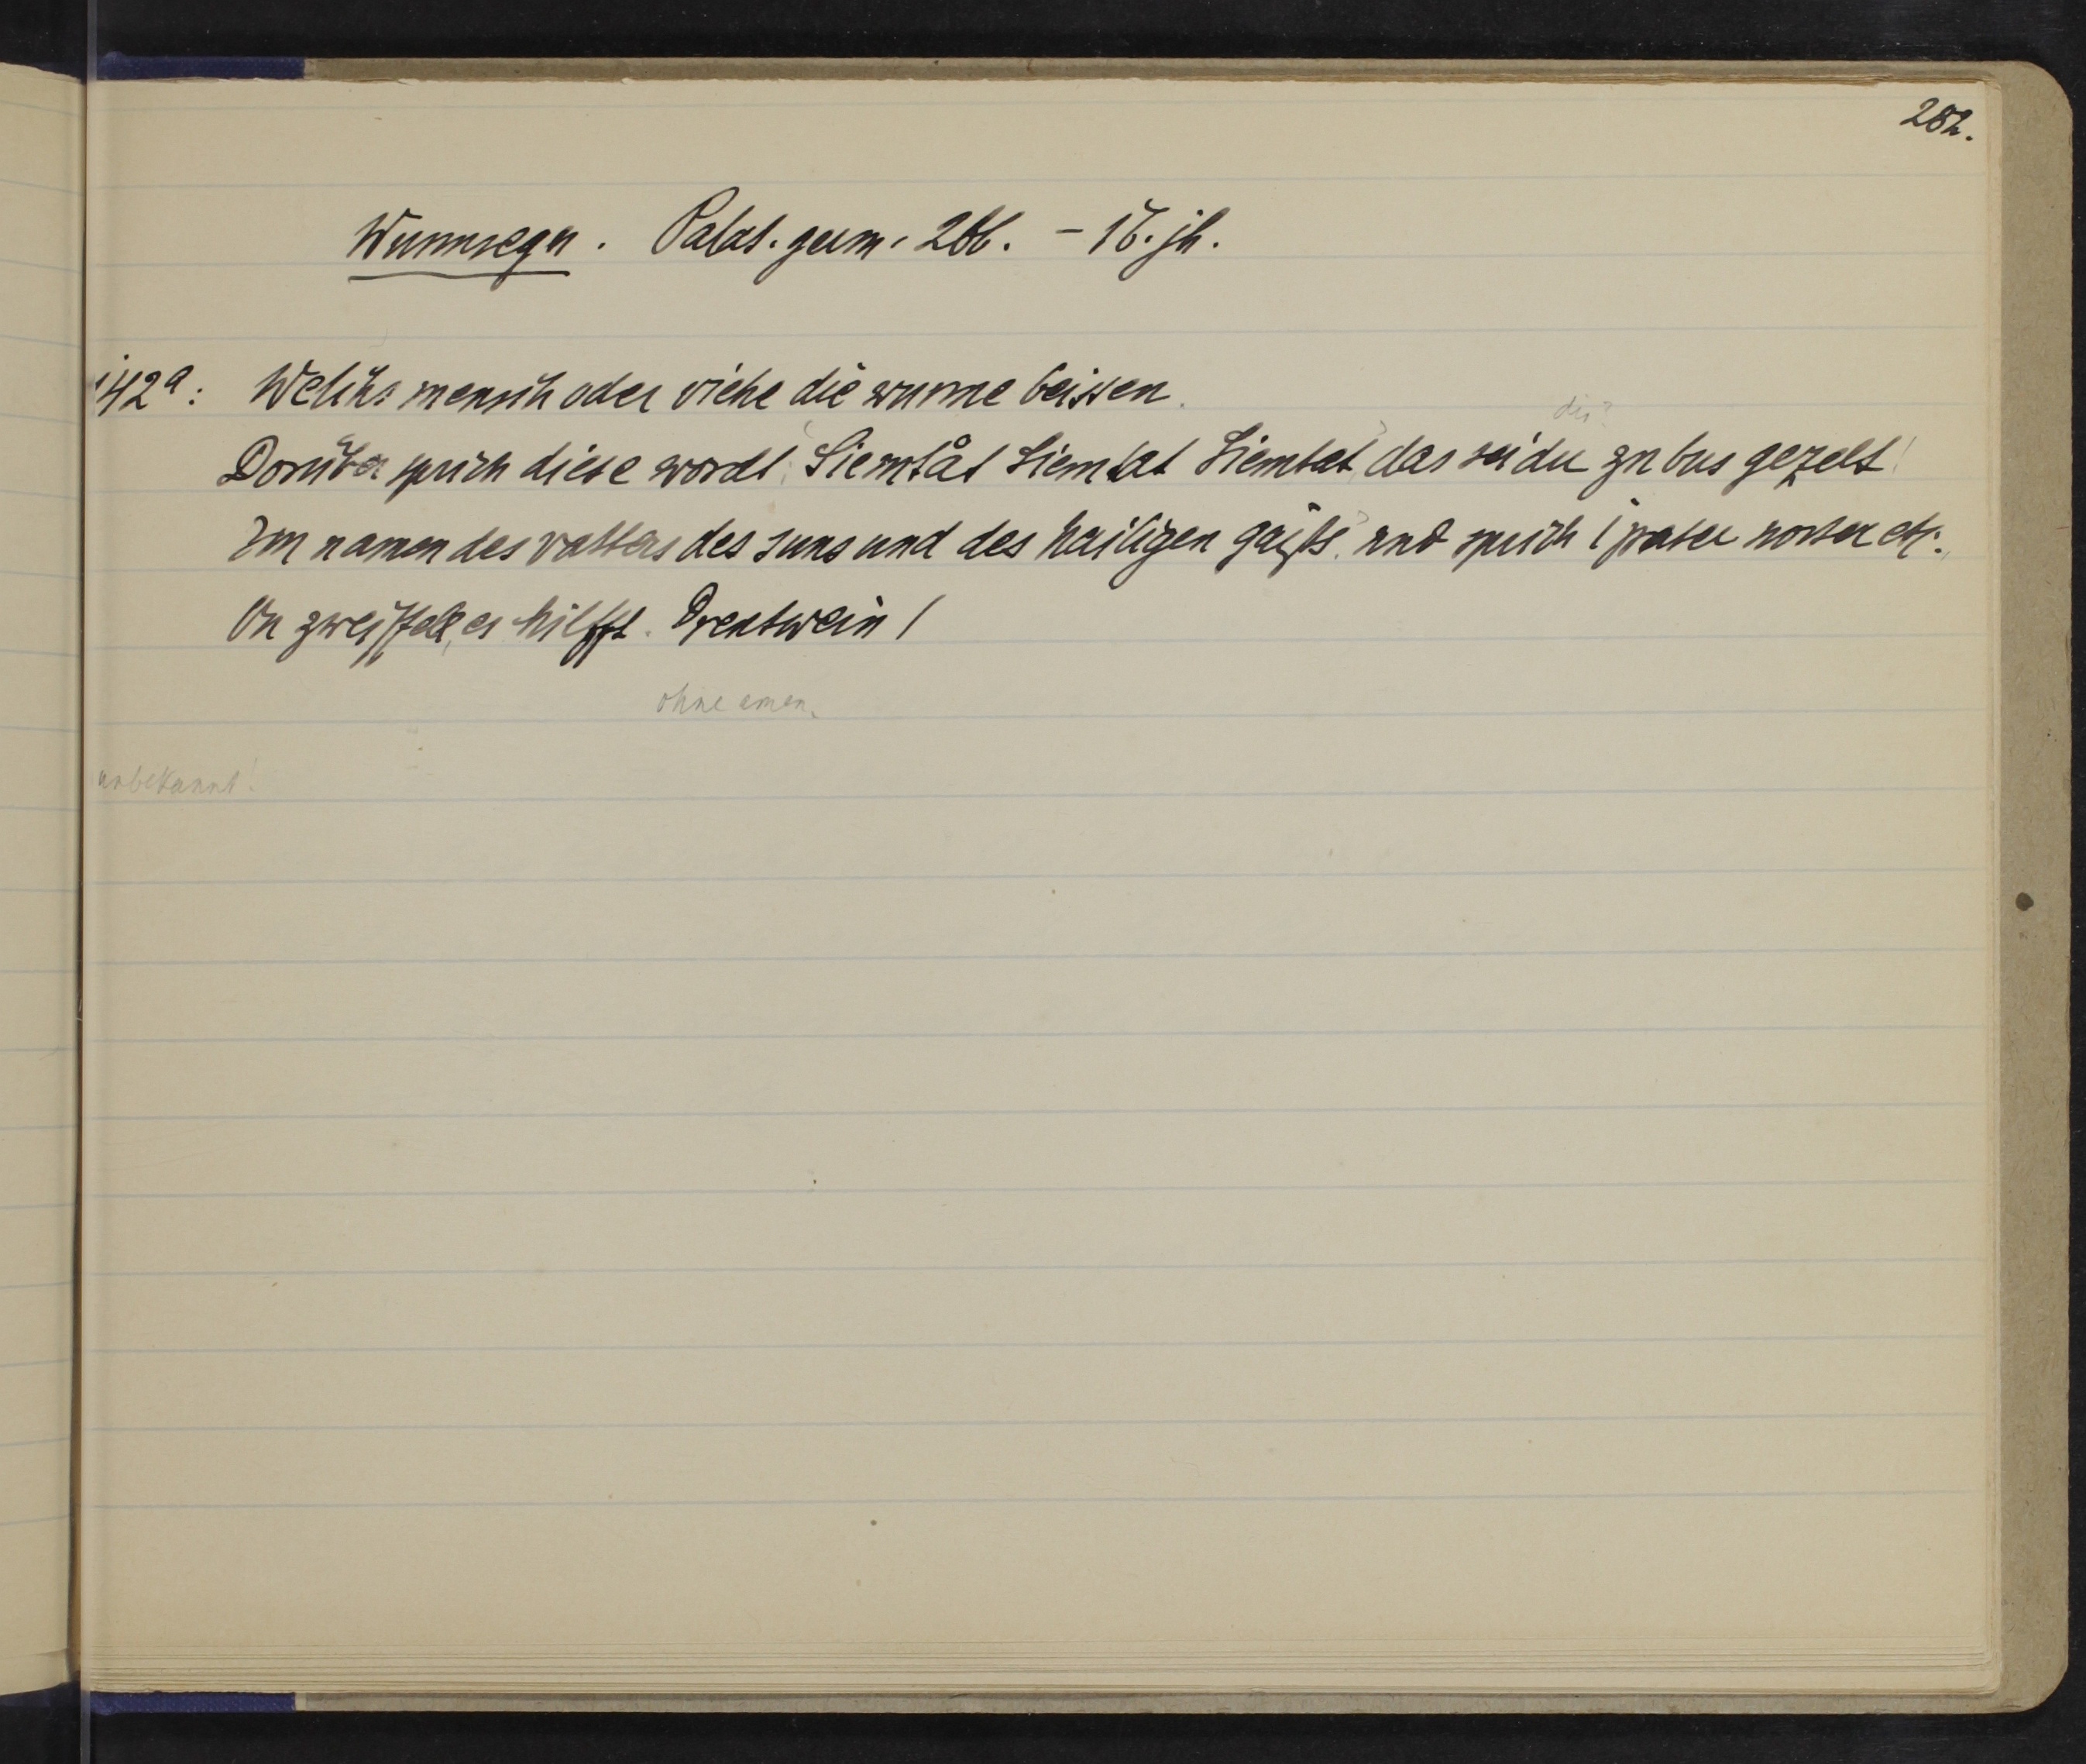 282.
Wurmsegn. Palat. germ. 266. – 16. jh.
142a: Welichs mensch oder viehe die wurme beissen.
dir?
Dorüber sprich diese wordt: Siemtåt Siemtat Siemtat, das sei du zu bus gezelt!
Im namen des vatters des suns und des hailigen gaists. und sprich 1 pater noster etc.,
On zweiffell, es hilfft. Drentwein /
ohne amen.
unbekannt!